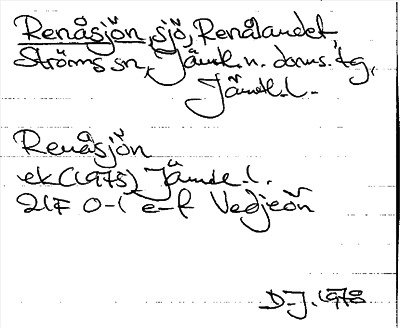 Renåsjön, sjö, Renålandet
Ströms sn, Jämtl. n. doms. tg,
Jämtl. l.
Renåsjön
ek (1975) Jämtl. l.
21F 0-1 e-f Vedjeön
D.J. 1978